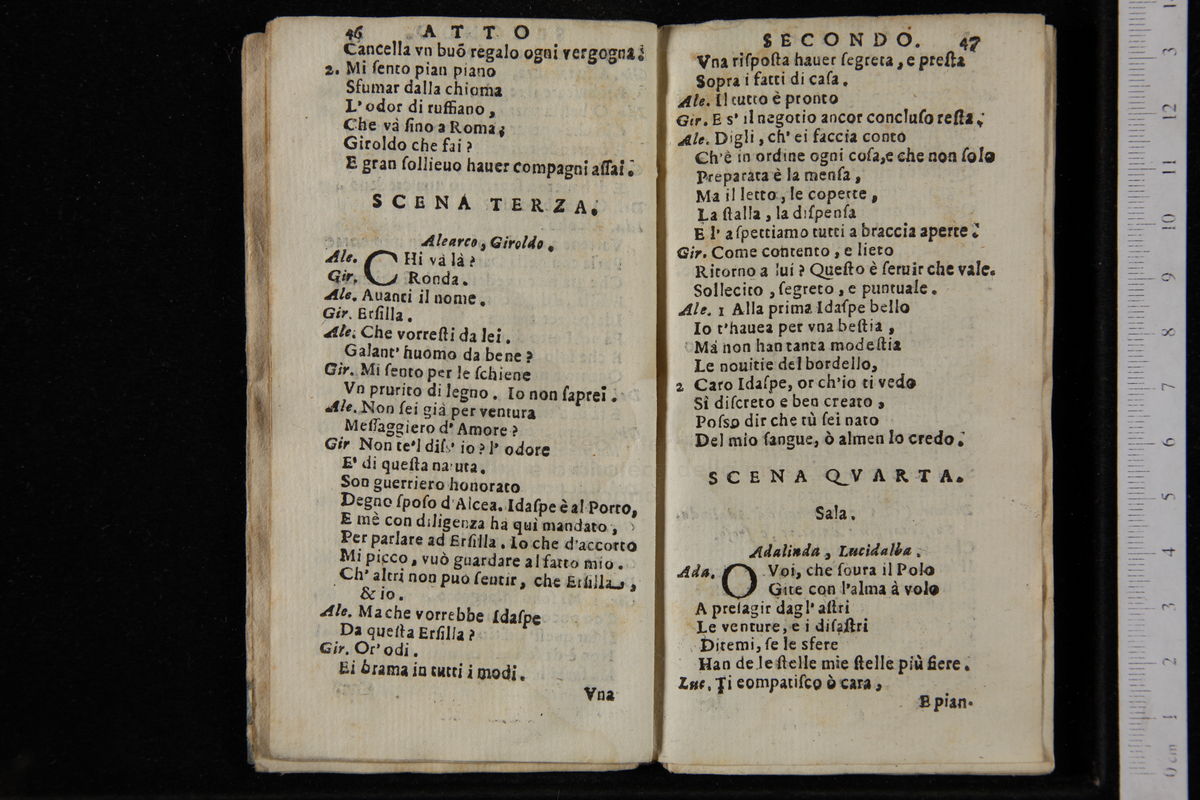 46 ATTO
Cancella vn buõ regalo ogni vergogna.
2. Mi ſento pian piano
Sfumar dalla chioma
L'odor di ruffiano,
Che và ſino a Roma;
Giroldo che fai?
E gran ſollieuo hauer compagni aſſai.
SCENA TERZA.
Alearco, Giroldo.
Ale. CHi và là?
Gir. Ronda.
Ale. Auanti il nome.
Gir. Erſilla.
Ale. Che vorreſti da lei.
Galant'huomo da bene?
Gir. Mi ſento per le ſchiene
Vn prurito di legno. Io non ſaprei.
Ale. Non ſei già per ventura
Meſſaggiero d'Amore?
Gir Non te'l diſs' io? l' odore
E' di queſta na uta.
Son guerriero honorato
Degno ſpoſo d'Alcea. Idaſpe è al Porto,
E mè con diligenza hà quì mandato,
Per parlare ad Erſilla. Io che d'accorto
Mi picco, vuò guardare al fatto mio.
Ch' altri non può ſentir, che Erſilla,
& io.
Ale. Ma che vorrebbe Idaſpe
Da queſta Erſilla?
Gir. Or' odi.
Ei brama in tutti i modi.
Vna
SECONDO. 47
Vna riſpoſta hauer ſegreta, e preſta
Sopra i fatti di caſa.
Ale. Il tutto è pronto
Gir. E s' il negotio ancor concluſo reſta.
Ale. Digli, ch' ei faccia conto
Ch'è in ordine ogni coſa,e che non ſolo
Preparata è la menſa,
Ma il letto, le coperte,
La ſtalla, la diſpenſa
E l' aſpettiamo tutti a braccia aperte.
Gir. Come contento, e lieto
Ritorno a lui? Queſto è ſeruir che vale.
Sollecito, ſegreto, e puntuale.
Ale. 1 Alla prima Idaſpe bello
Io t'hauea per vna beſtia,
Mà non han tanta modeſtia
Le nouitie del bordello,
2 Caro Idaſpe, or ch'io ti vedo
Sì diſcreto e ben creato,
Poſso dir che tù ſei nato
Del mio ſangue, ò almen lo credo.
SCENA QVARTA.
Sala.
Adalinda, Lucidalba.
Ada. O Voi, che ſoura il Polo
Gite con l'alma à volo
A preſagir dagl' aſtri
Le venture, e i diſaſtri
Ditemi, ſe le sfere
Han de le ſtelle mie ſtelle più fiere.
Luc. Ti compatiſco ò cara,
E pian-